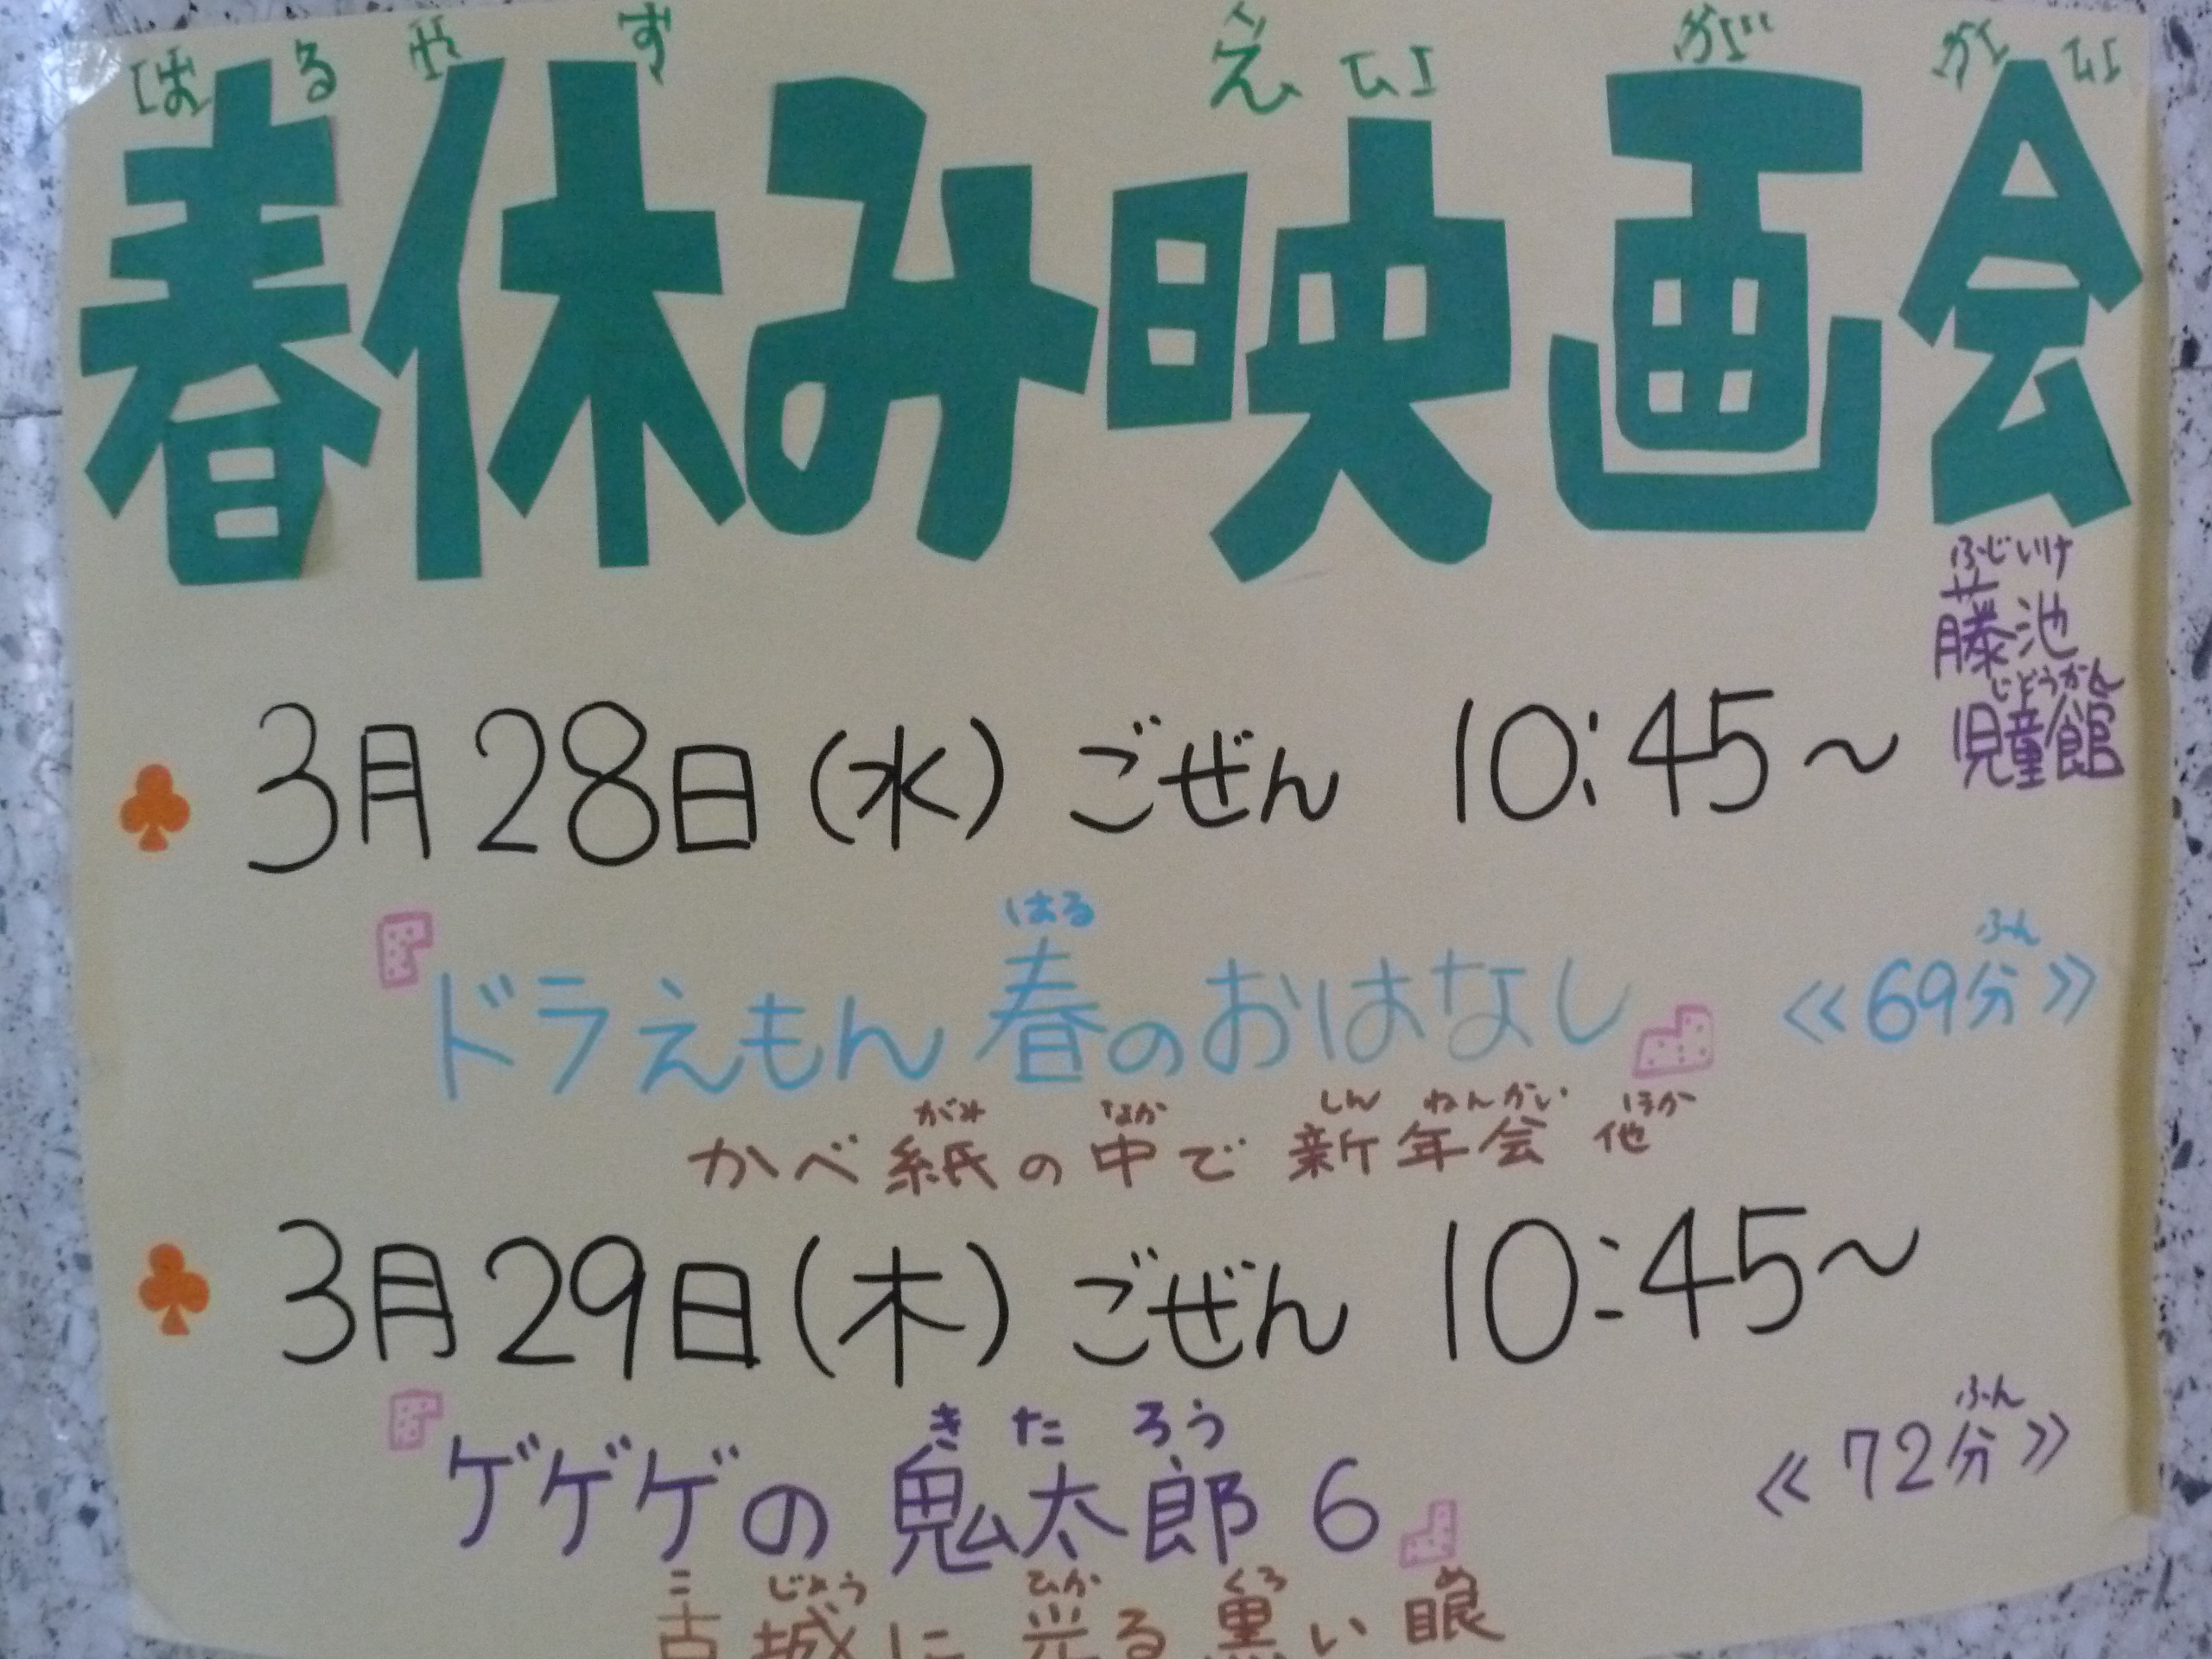 はる やす えい が かい
春休み映画会
ふじいけ
藤池
じどうかん
児童館
3月28日(水) ごぜん 10:45～
はる
『ドラえもん 春のおはなし』
ふん
≪69分≫
がみ なか しん ねんかい ほか
かべ紙の中で 新年会 他
3月29日(木) ごぜん 10:45～
き た ろう
『ゲゲゲの 鬼太郎 6』
ふん
≪72分≫
こ じょう ひか くろ め
古城に光る黒い眼